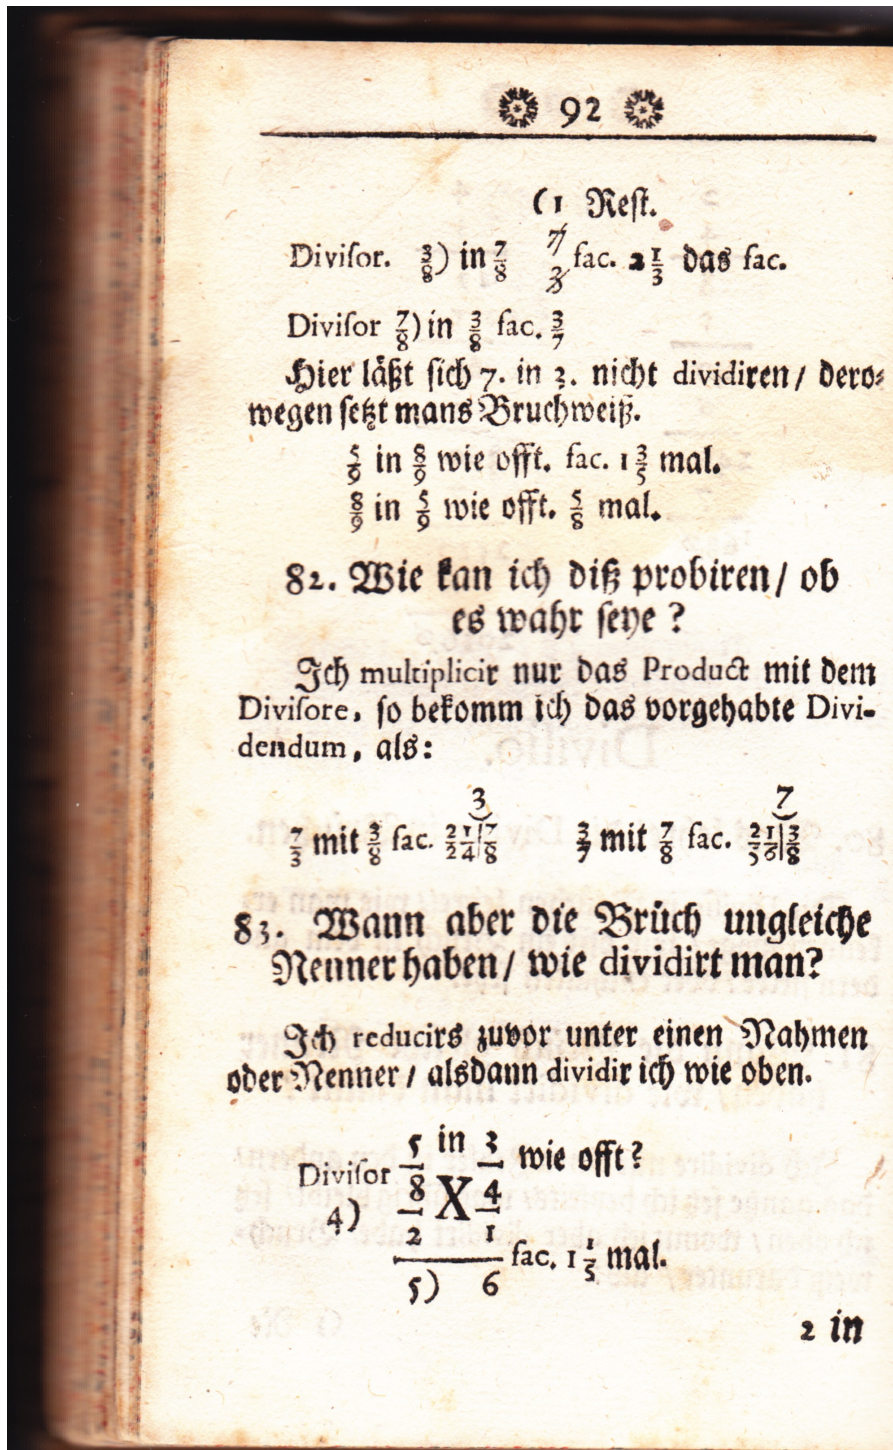 92
(1 Reſt.
Diviſor. 3/8) in 7/8 7/3 fac. 2 1/3 das fac.
Diviſor 7/8) in 3/8 fac. 3/7
Hier läßt ſich 7. in 3. nicht dividiren / dero⸗
wegen ſetzt mans Bruchweiß.
5/9 in 8/9 wie offt. fac. 1 3/5 mal.
8/9 in 5/9 wie offt. 5/8 mal.
82. Wie kan ich diß probiren / ob
es wahr ſeye ?
Ich multiplicir nur das Product mit dem
Diviſore, ſo bekomm ich das vorgehabte Divi-
dendum, als:
3 7
7/3 mit 3/8 fac. 2/2 1/4 | 7/8 3/7 mit 7/8 fac. 2/5 1/6 | 3/8
83. Wann aber die Brüch ungleiche
Nenner haben / wie dividirt man?
Ich reducirs zuvor unter einen Nahmen
oder Nenner / alsdann dividir ich wie oben.
Diviſor 5/8 in 3/4 wie offt?
4) X
2 1
5) 6 fac. 1 1/5 mal.
2 in